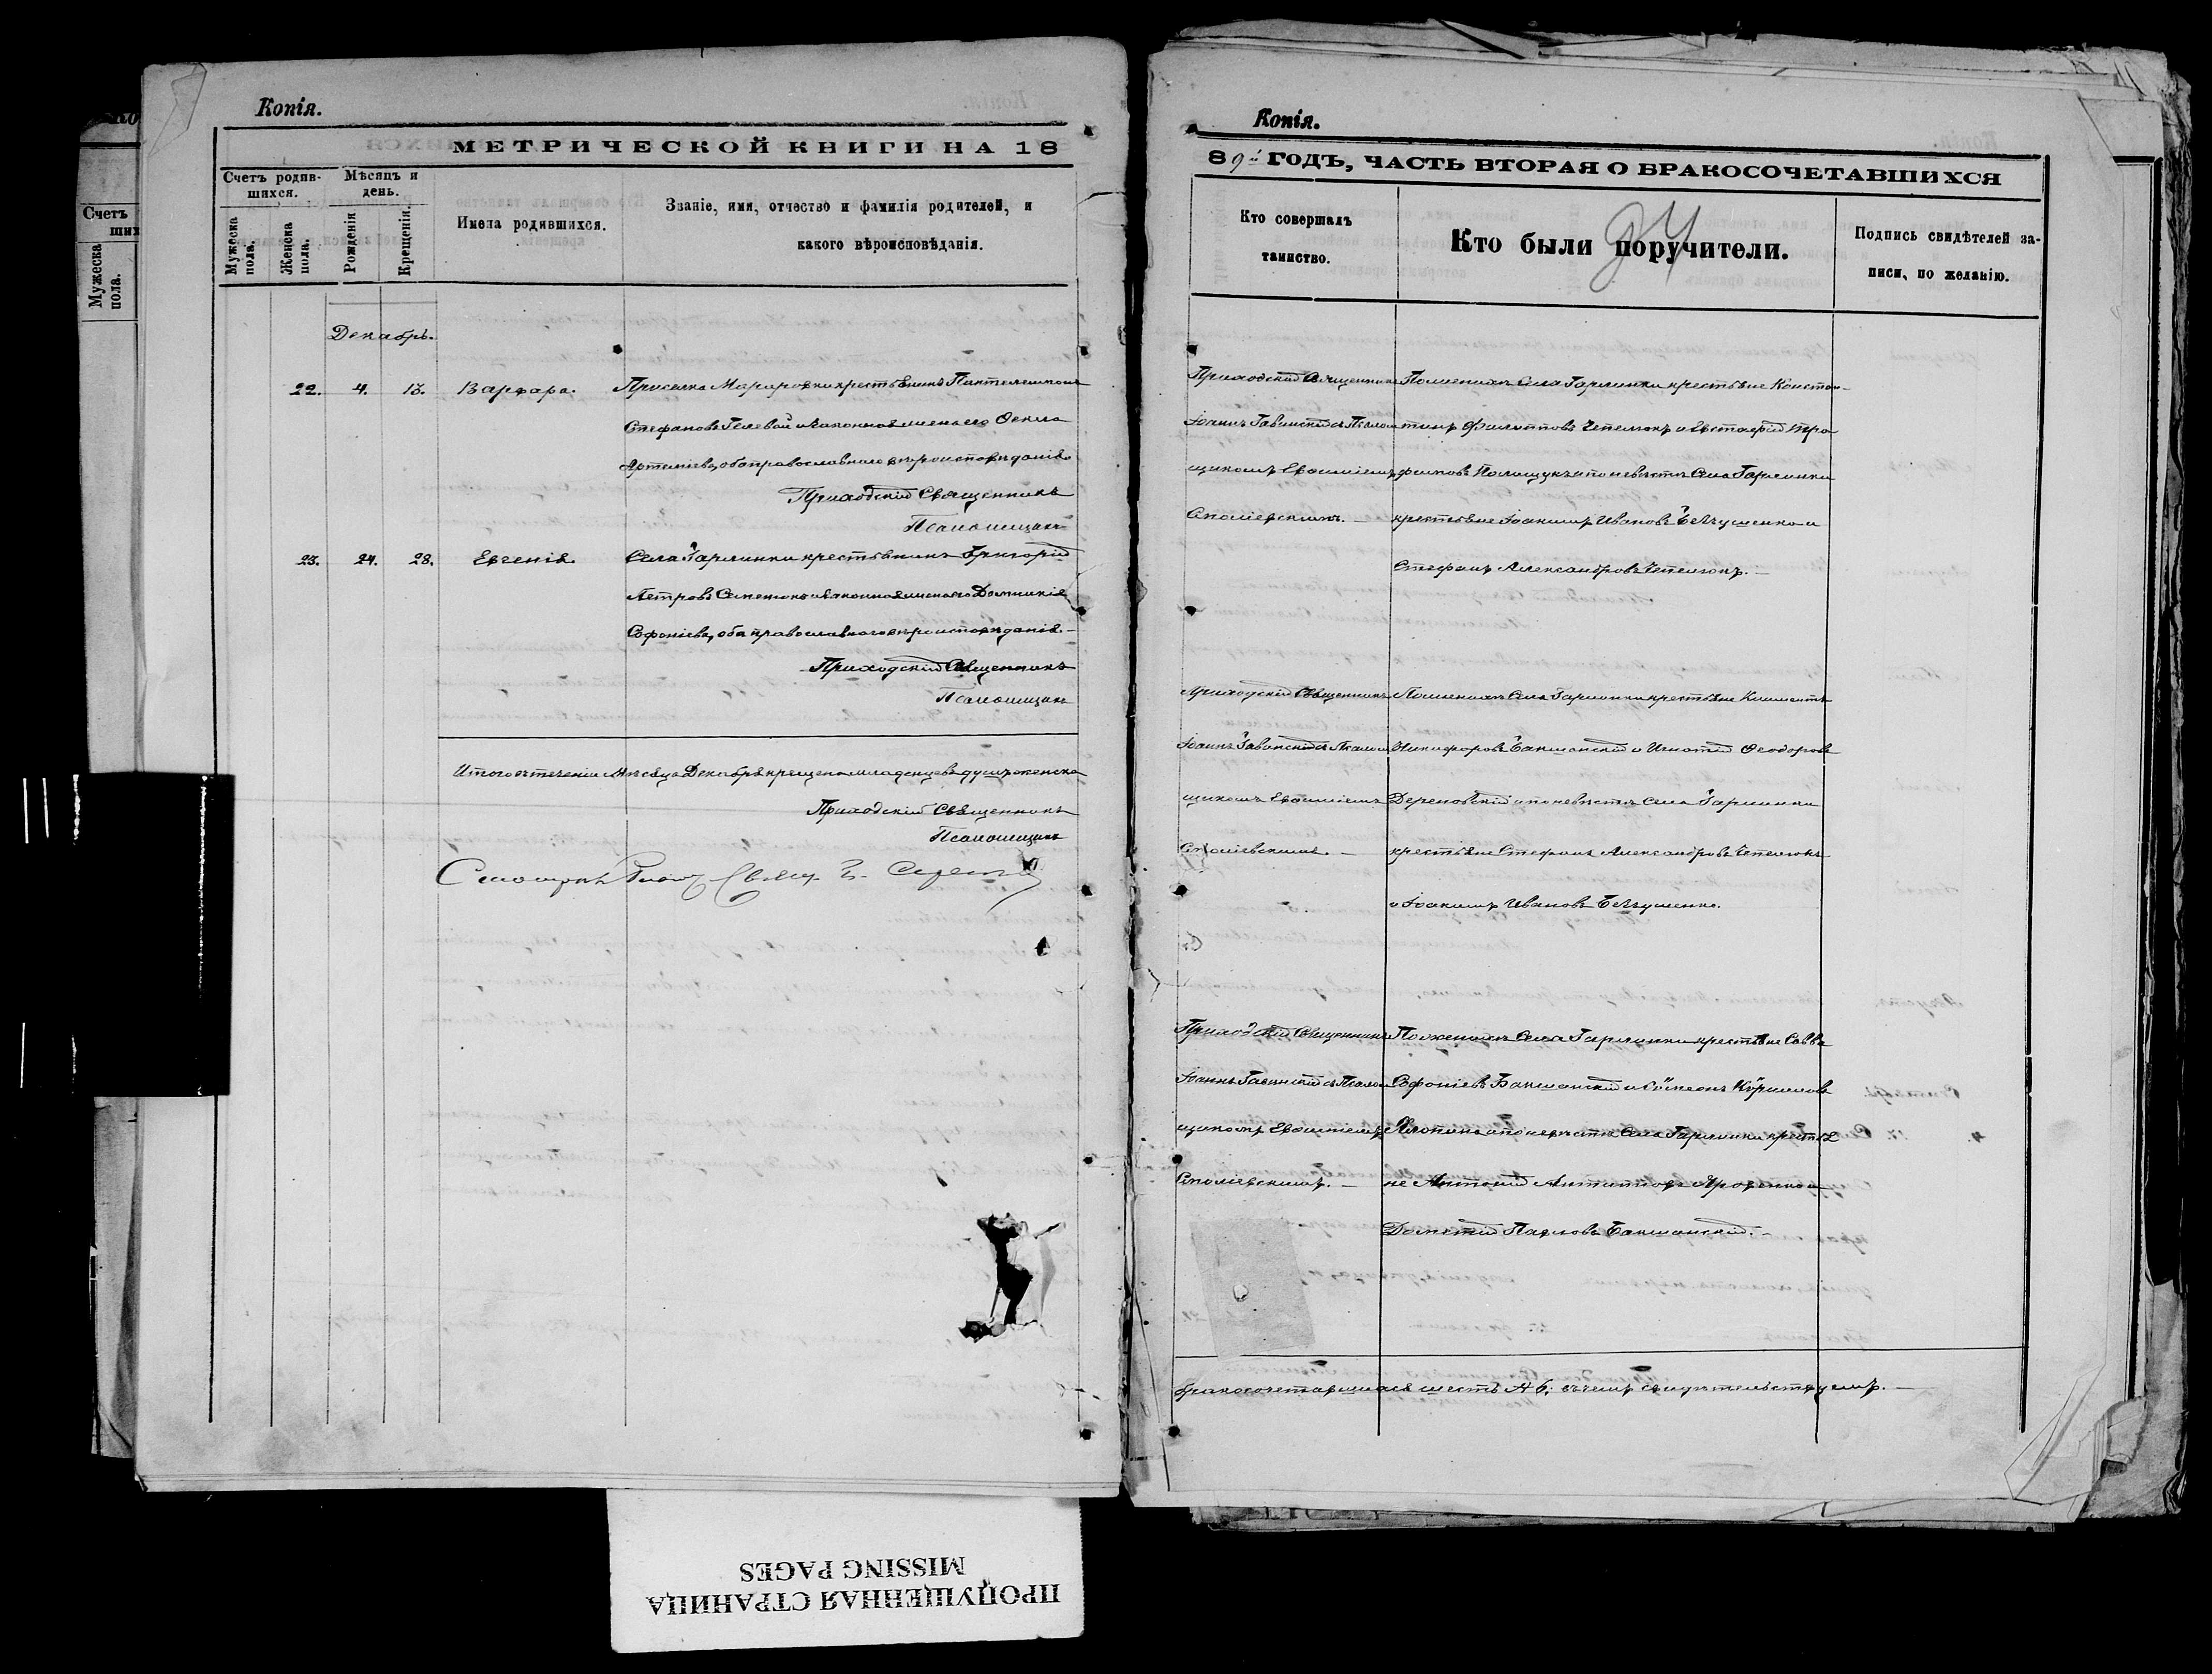 Копія.
МЕТРИЧЕСКОЙ КНИГИ НА 18
Счетъ родив-
шихся.
Мѣсяцъ и
день.
Мужеска
пола.
Женска
пола.
Рожденія
Крещенія.
Имена родившихся.
Званіе, имя, отчество и фамилія родителей, и
какого вѣроисповѣданія.
Декабрь.
22. 4. 13. Варвара.
Приселка Мараровки крестьянинъ Пантелеимонъ
Стефановъ Гелевой и законная жена его Ѳекла
Артеміева, оба православнаго вѣроисповѣданія
Приходскій Священникъ
Псаломщикъ
23. 24. 28. Евгенія.
Села Гарминки крестьянинъ Григорій
Петровъ и законная жена его Домникія
Софоніева, оба православнаго вѣроисповѣданія.
Приходскій Священникъ
Псаломщикъ
Итого въ теченіи Мѣсяца Декабря крещено младенцевъ двѣ женска
Приходскій Священникъ
Псаломщикъ
Копія.
89й ГОДЪ, ЧАСТЬ ВТОРАЯ О БРАКОСОЧЕТАВШИХСЯ
Кто совершалъ
таинство.
Кто были поручители.
Подпись свидѣтелей за-
писи, по желанію.
Приходскій Священникъ
Іоаннъ съ Псалом
щикомъ Евфиміемъ
Споліевскимъ. —
По женихѣ Села Гарминки крестьяне Констан-
тинъ Филипповъ Чепелюкъ и Евстафій Тро
фимовъ Полищукъ и по невѣстѣ Села Гарминки
крестьяне Іоакимъ Ивановъ Бевзушенко и
Стефанъ Александровъ Чепелюкъ. —
Приходскій Священникъ
Іоаннъ съ Псалом
щикомъ Евфиміемъ
Споліевскимъ. —
По женихѣ Села Гарминки крестьяне Климентъ
Никифоровъ Бакшанскій и Игнатій Ѳеодоровъ
Дереновскій и по невѣстѣ Села Гарминки
крестьяне Стефанъ Александровъ Чепелюкъ
и Іоакимъ Ивановъ Бевзушенко.
Приходскій Священникъ
Іоаннъ съ Псалом
щикомъ Евфиміемъ
Споліевскимъ. —
По женихѣ Села Гарминки крестьяне Савва
Софоніевъ Бакшанскій и Сѵмеонъ Кѵрилловъ
и по невѣстѣ Села Гарминки крестья
не Антоній Антиповъ и
Дометій Павловъ Бакшанскій. —
бракосочетавшихся шесть № 6; въ чемъ свидѣтельствуемъ. —
Счетъ
Мужеска
пола.
ПРОПУЩЕННАЯ СТРАНИЦА
MISSING PAGES